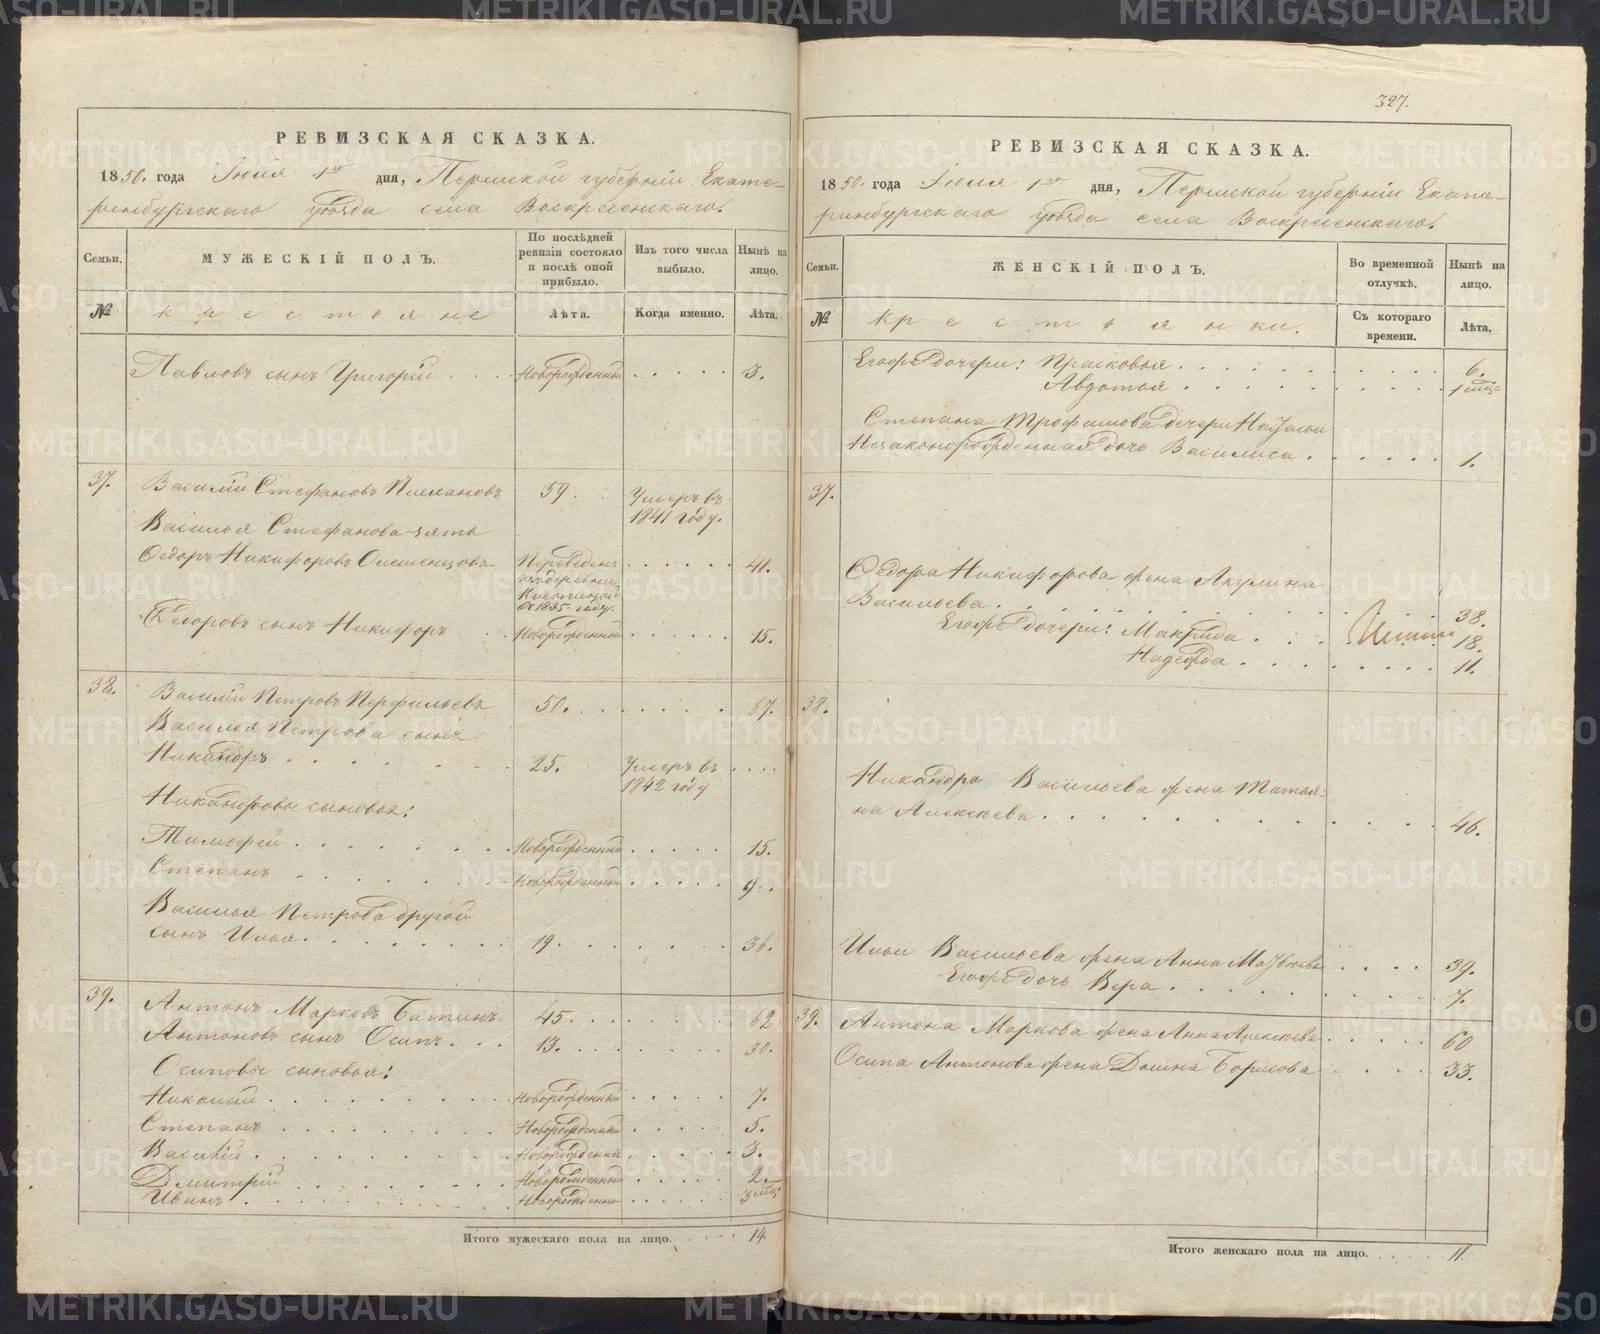 327.
РЕВИЗСКАЯ СКАЗКА.
1850. года Июля 1го дня, Пермской губернiи Екате-
ринбургскаго уѣзда села Воскресенскаго.
Семьи.
МУЖЕСКIЙ ПОЛЪ.
По послѣдней
ревизiи состояло
и послѣ оной
прибыло.
Изъ того числа
выбыло.
Нынѣ на
лицо.
№
крестьяне
Лѣта.
Когда именно.
Лѣта.
Павловъ сынъ Григорiй . . . . Новорожденный . . . . . 3.
37. Василiй Стефановъ 59. Умеръ въ
1841 году.
Василья Стефанова зять
Ѳедоръ Никифоровъ Переведенъ . . . . . 41.
изъ деревни
въ 1835 году.
Ѳедоровъ сынъ Никифоръ Новорожденный . . . . . 15.
38. Василiй Петровъ Перфильевъ 50. . . . . . . 67.
Василья Петрова сынъ
Никандръ . . . . . . . 25. Умеръ въ . . . .
1842 году
Никандровы сыновья:
Тимофей . . . . . . . Новорожденный . . . . . 15.
Степанъ . . . . . . . Новорожденный . . . . . 9.
Василья Петрова другой
сынъ Илья . . . . . . . 19. . . . . . . 36.
39. Антонъ Марковъ Батинъ 45. . . . . . . 62
Антоновъ сынъ Осипъ . . . 13. . . . . . . 30.
Осиповы сыновья:
Николай . . . . . . . Новорожденный . . . . . 7.
Степанъ . . . . . . . Новорожденный . . . . . 5.
Василiй . . . . . . . Новорожденный . . . . . 3.
Дмитрiй . . . . . . . Новорожденный . . . . . 2.
Иванъ . . . . . . . Новорожденный . . . . . 3 мѣц
Итого мужескаго пола на лицо. . . . . 14.
РЕВИЗСКАЯ СКАЗКА.
1850. года Июля 1го дня, Пермской губернiи Екате-
ринбургскаго уѣзда села Воскресенскаго.
Семьи.
ЖЕНСКIЙ ПОЛЪ.
Во временной
отлучкѣ.
Нынѣ на
лицо.
№
крестьянки.
Съ котораго
времени.
Лѣта.
Егожъ дочери: Прасковья . . . . . . . 6.
Авдотья . . . . . . . 1 мѣц
Степана Трофимова дочери Натальи
Незаконнорожденная дочь Василиса . . . . . . 1.
37.
Ѳедора Никифорова жена Акулина
Васильева . . . . . . . 38.
Егожъ дочери: Макрида . . . . . 18.
Надежда . . . . . . . 11.
38.
Никандра Васильева жена Татья-
на Алексѣева . . . . . . . 46.
Ильи Васильева жена Анна Матвѣева . . . . 39.
Егожъ дочь Вера . . . . . . . 7.
39. Антона Маркова жена Анна Алексѣева . . . . . 60
Осипа Антонова жена Домна Борисова . . . . 33.
Итого женскаго пола на лицо. . . . . . 11.
METRIKI.GASO-URAL.RU